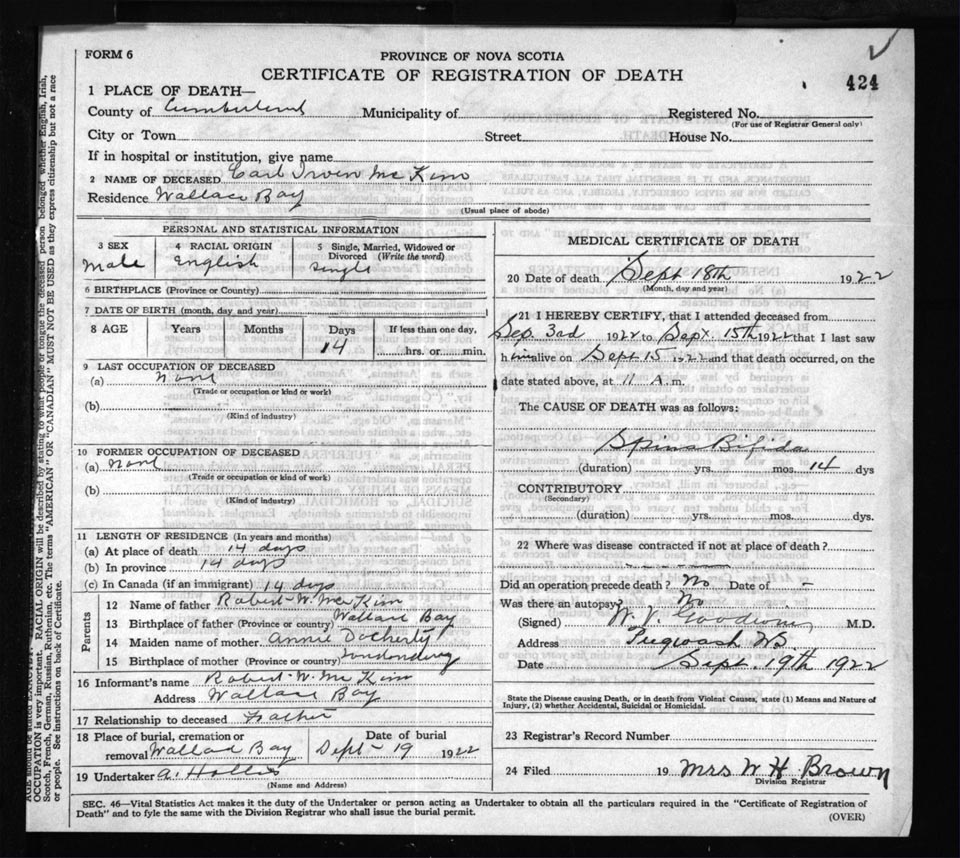 FORM 6
PROVINCE OF NOVA SCOTIA
CERTIFICATE OF REGISTRATION OF DEATH
424
1 PLACE OF DEATH—
County of Cumberland Municipality of Registered No.
(For use of Registrar General only)
City or Town Street House No.
If in hospital or institution, give name
2 NAME OF DECEASED Carl Irven McKim
Residence Wallace Bay
(Usual place of abode)
PERSONAL AND STATISTICAL INFORMATION
3 SEX 4 RACIAL ORIGIN 5 Single, Married, Widowed or Divorced (Write the word)
Male English Single
6 BIRTHPLACE (Province or Country)
7 DATE OF BIRTH (month, day and year)
8 AGE Years Months Days If less than one day,
14 hrs. or min.
9 LAST OCCUPATION OF DECEASED
(a) None
(Trade or occupation or kind or work)
(b)
(Kind of industry)
10 FORMER OCCUPATION OF DECEASED
(a) None
(Trade or occupation or kind of work)
(b)
(Kind of industry)
11 LENGTH OF RESIDENCE (In years and months)
(a) At place of death 14 days
(b) In province 14 days
(c) In Canada (if an immigrant) 14 days
Parents
12 Name of father Robert W. McKim
13 Birthplace of father (Province or country) Wallace Bay
14 Maiden name of mother Annie Docherty
15 Birthplace of mother (Province or country) Londonderry
16 Informant's name Robert W. McKim
Address Wallace Bay
17 Relationship to deceased Father
18 Place of burial, cremation or removal Wallace Bay
Date of burial
Sept - 19 1922
19 Undertaker A. Hollis
(Name and Address)
MEDICAL CERTIFICATE OF DEATH
20 Date of death Sept 18th 1922
(Month, day and year)
21 I HEREBY CERTIFY, that I attended deceased from
Sep. 3rd 1922 to Sept. 15th 1922 that I last saw
him alive on Sept 15 1922 and that death occurred, on the
date stated above, at 11 A. m.
The CAUSE OF DEATH was as follows:
Spina Bifida
(duration) yrs. mos. 14 dys
CONTRIBUTORY
(Secondary)
(duration) yrs. mos. dys.
22 Where was disease contracted if not at place of death?
Did an operation precede death? No Date of -
Was there an autopsy? No
(Signed) W. V. Goodwin, M.D.
Address Pugwash NS
Date Sept. 19th 1922
State the Disease causing Death, or in death from Violent Causes, state (1) Means and Nature of
Injury, (2) whether Accidental, Suicidal or Homicidal.
23 Registrar's Record Number
24 Filed 19 Mrs W H Brown
Division Registrar
SEC. 46—Vital Statistics Act makes it the duty of the Undertaker or person acting as Undertaker to obtain all the particulars required in the "Certificate of Registration of
Death" and to fyle the same with the Division Registrar who shall issue the burial permit.
(OVER)
OCCUPATION is very important. RACIAL ORIGIN will be described by stating to what people or tongue the deceased person belonged whether English, Irish,
Scotch, French, German, Russian, Ruthenian, etc. The terms "AMERICAN" OR "CANADIAN" MUST NOT BE USED as they express citizenship but not a race
or people. See instructions on back of Certificate.